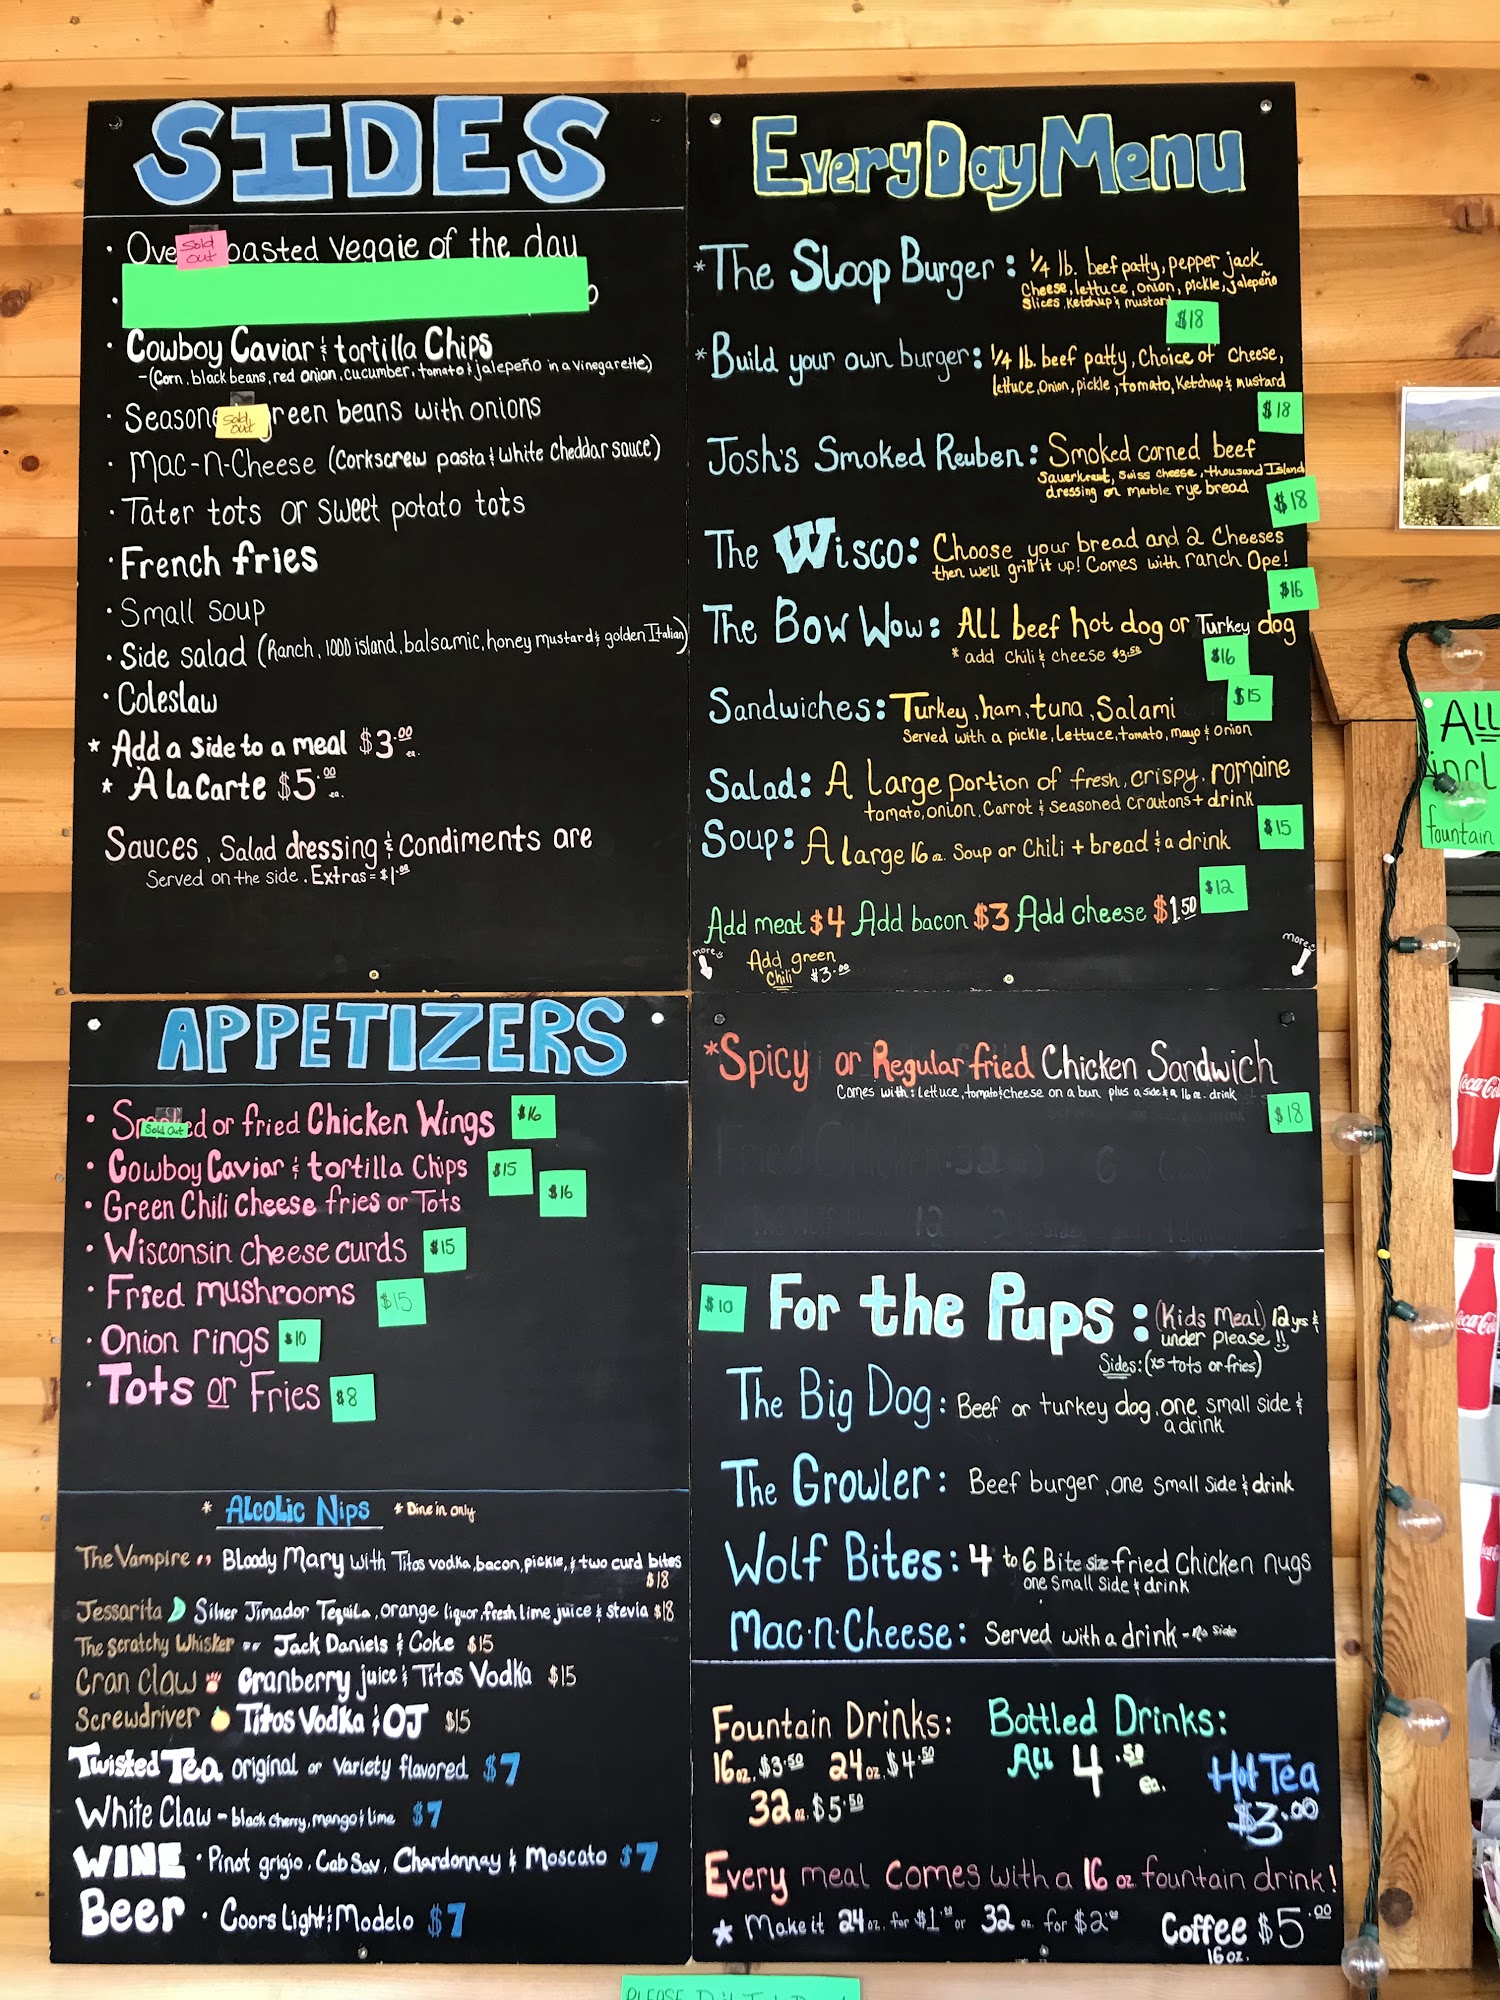 SIDES
· Ove Sold out oasted veggie of the day
· Cowboy Caviar & tortilla Chips
-(Corn, black beans, red onion, cucumber, tomato & jalepeño in a vinegarette)
· Season Sold out reen beans with onions
· Mac-n-Cheese (Corkscrew pasta & white cheddar sauce)
· Tater tots or sweet potato tots
· French fries
· Small soup
· Side salad (Ranch, 1000 island, balsamic, honey mustard & golden Italian)
· Coleslaw
* Add a side to a meal $3.00 ea.
* A la Carte $5.00 ea.
Sauces, Salad dressing & Condiments are
Served on the side. Extras = $1.00
EveryDay Menu
*The Sloop Burger: 1/4 lb. beef patty, pepper jack
Cheese, lettuce, onion, pickle, jalapeño
Slices, Ketchup & mustard
$18
*Build your own burger: 1/4 lb. beef patty, Choice of Cheese,
lettuce, Onion, pickle, tomato, Ketchup & mustard
$18
Josh's Smoked Reuben: Smoked corned beef
Sauerkraut, Swiss cheese, thousand Island
dressing on marble rye bread
$18
The Wisco: Choose your bread and 2 Cheeses
then we'll grill it up! Comes with ranch Ope!
$16
The Bow Wow: All beef hot dog or Turkey dog
* add Chili & cheese $3.50
$16
Sandwiches: Turkey, ham, tuna, Salami $15
Served with a pickle, Lettuce, tomato, mayo & onion
Salad: A Large portion of fresh, crispy, romaine
tomato, onion, Carrot & seasoned croutons + drink
$15
Soup: A large 16 oz. Soup or Chili + bread & a drink
$12
Add meat $4 Add bacon $3 Add cheese $1.50
more
Add green
Chili $3.00
more
APPETIZERS
· Sm Sold Out ed or fried Chicken Wings $16
· Cowboy Caviar & tortilla Chips $15
· Green Chili Cheese fries or Tots $16
· Wisconsin cheese curds $15
· Fried mushrooms $15
· Onion rings $10
· Tots or Fries $8
* Alcolic Nips * Dine in only
The Vampire Bloody Mary with Titos vodka, bacon, pickle, & two curd bites
$18
Jessarita Silver Jimador Tequila, orange liquor, fresh lime juice & stevia $18
The Scratchy Whisker Jack Daniels & Coke $15
Cran Claw Cranberry juice & Titos Vodka $15
Screwdriver Titos Vodka & OJ $15
Twisted Tea original or Variety flavored $7
White Claw - black cherry, mango & lime $7
WINE · Pinot grigio, Cab Sav, Chardonnay & Moscato $7
Beer · Coors Light & Modelo $7
*Spicy or Regular fried Chicken Sandwich
Comes with: Lettuce, tomato & cheese on a bun plus a side & a 16 oz. drink
$18
$10 For the Pups: (Kids Meal) 12 yrs &
under please!!
Sides: (xs tots or fries)
The Big Dog: Beef or turkey dog, one small side &
a drink
The Growler: Beef burger, one small side & drink
Wolf Bites: 4 to 6 Bite size fried Chicken nugs
one small side & drink
Mac·n·Cheese: Served with a drink - No side
Fountain Drinks:
16 oz. $3.50 24 oz. $4.50
32 oz. $5.50
Bottled Drinks:
All 4.50 ea.
Hot Tea
$3.00
Every meal comes with a 16 oz. fountain drink!
* Make it 24 oz. for $1.00 or 32 oz. for $2.00
Coffee $5.00
16 oz.
ALL
incl
fountain
Coca-Cola
Coca-Cola